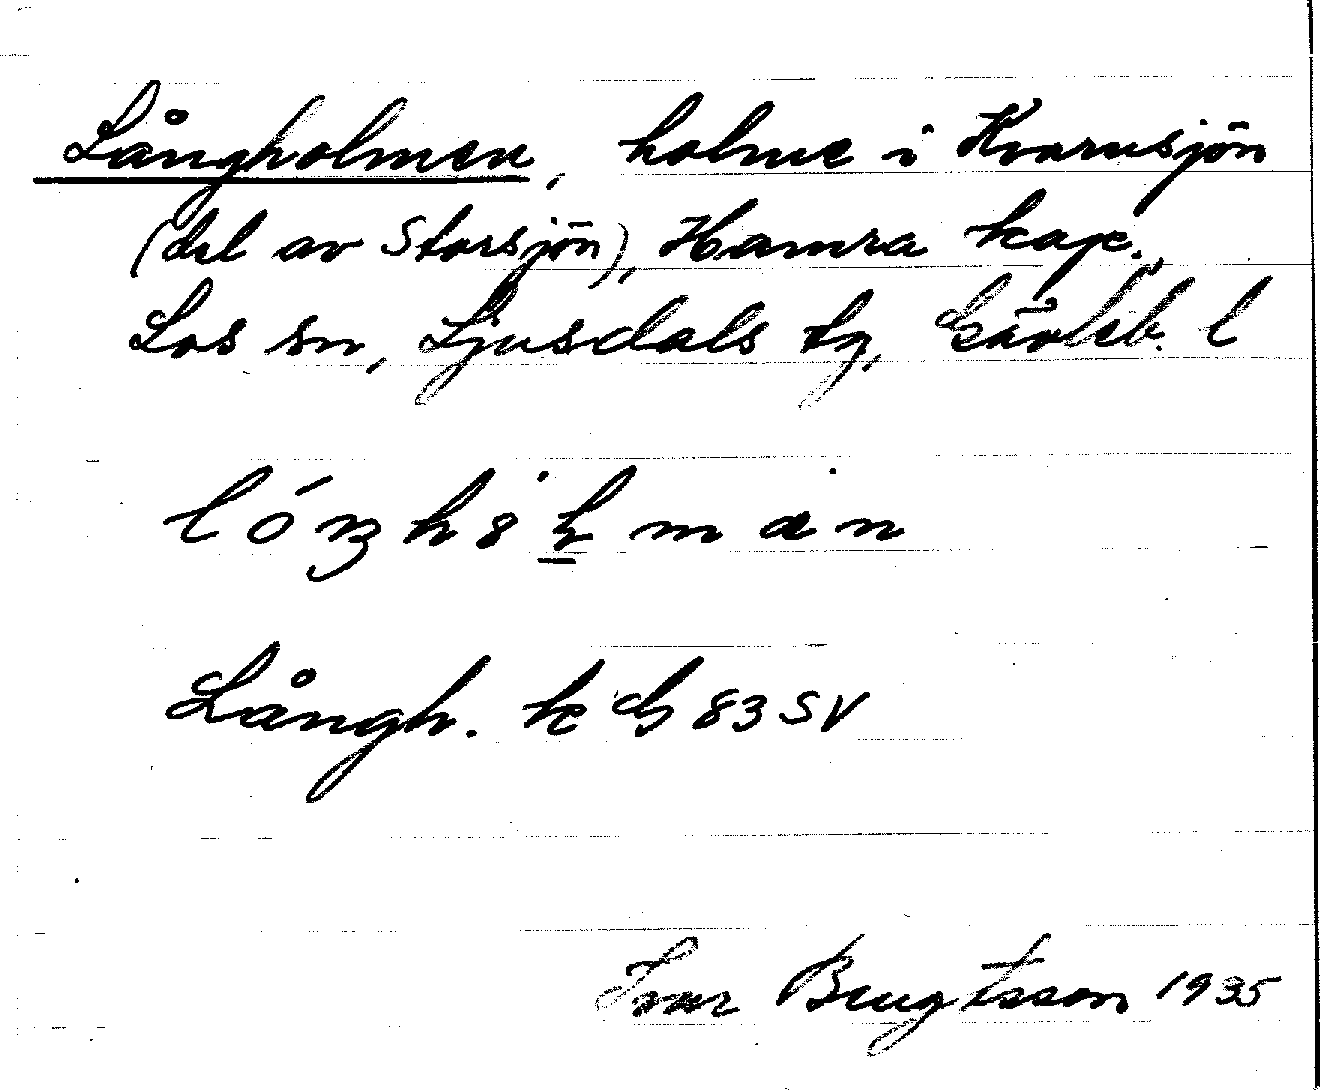 Långholmen, holme i Kvarnsjön
(del av Storsjön), Hamra kap.,
Los sn, Ljusdals tg, Gävleb. l
Långh. k G 83 SV
Ivar Bengtsson 1935